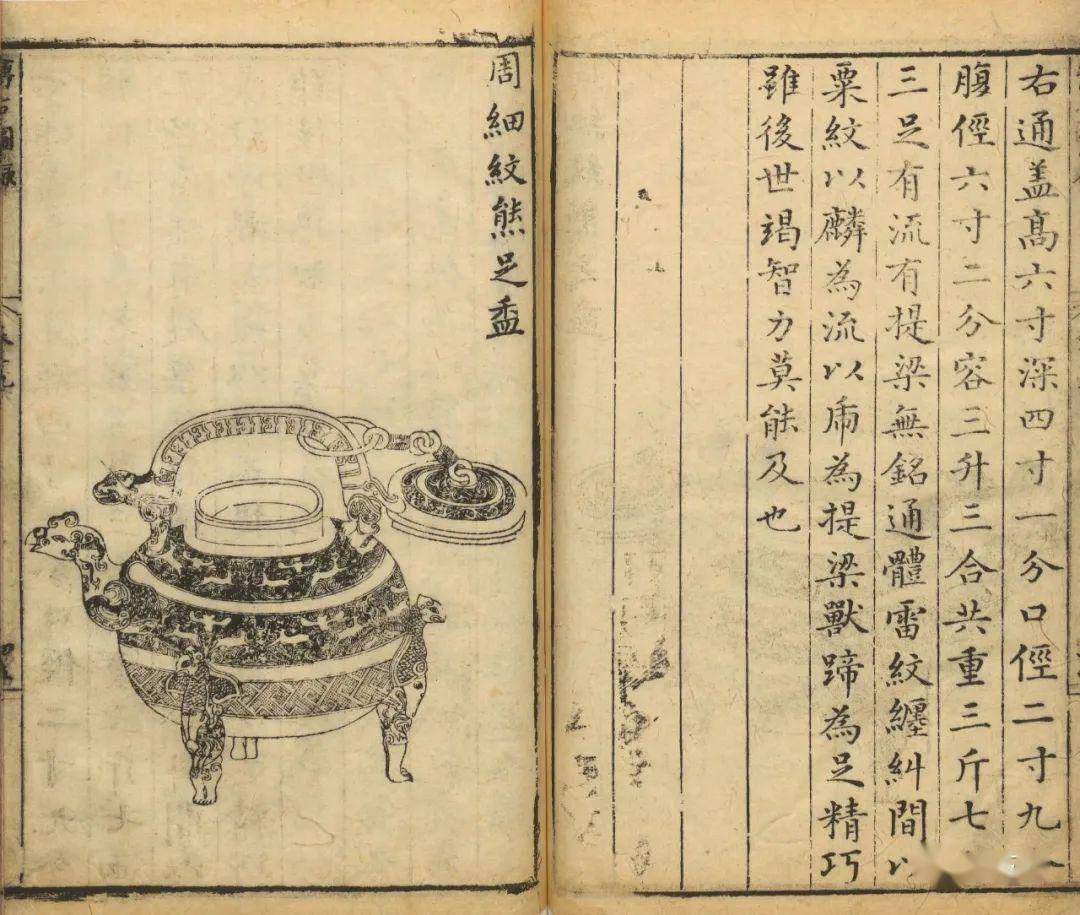 右通盖高六寸深四寸一分口徑二寸九
腹徑六寸二分容三升三合共重三斤七
三足有流有提梁無銘通體雷紋纏糾間以
粟紋以麟為流以虎為提梁獸蹄為足精巧
雖後世竭智力莫能及也
周細紋熊足盉
博古圖錄